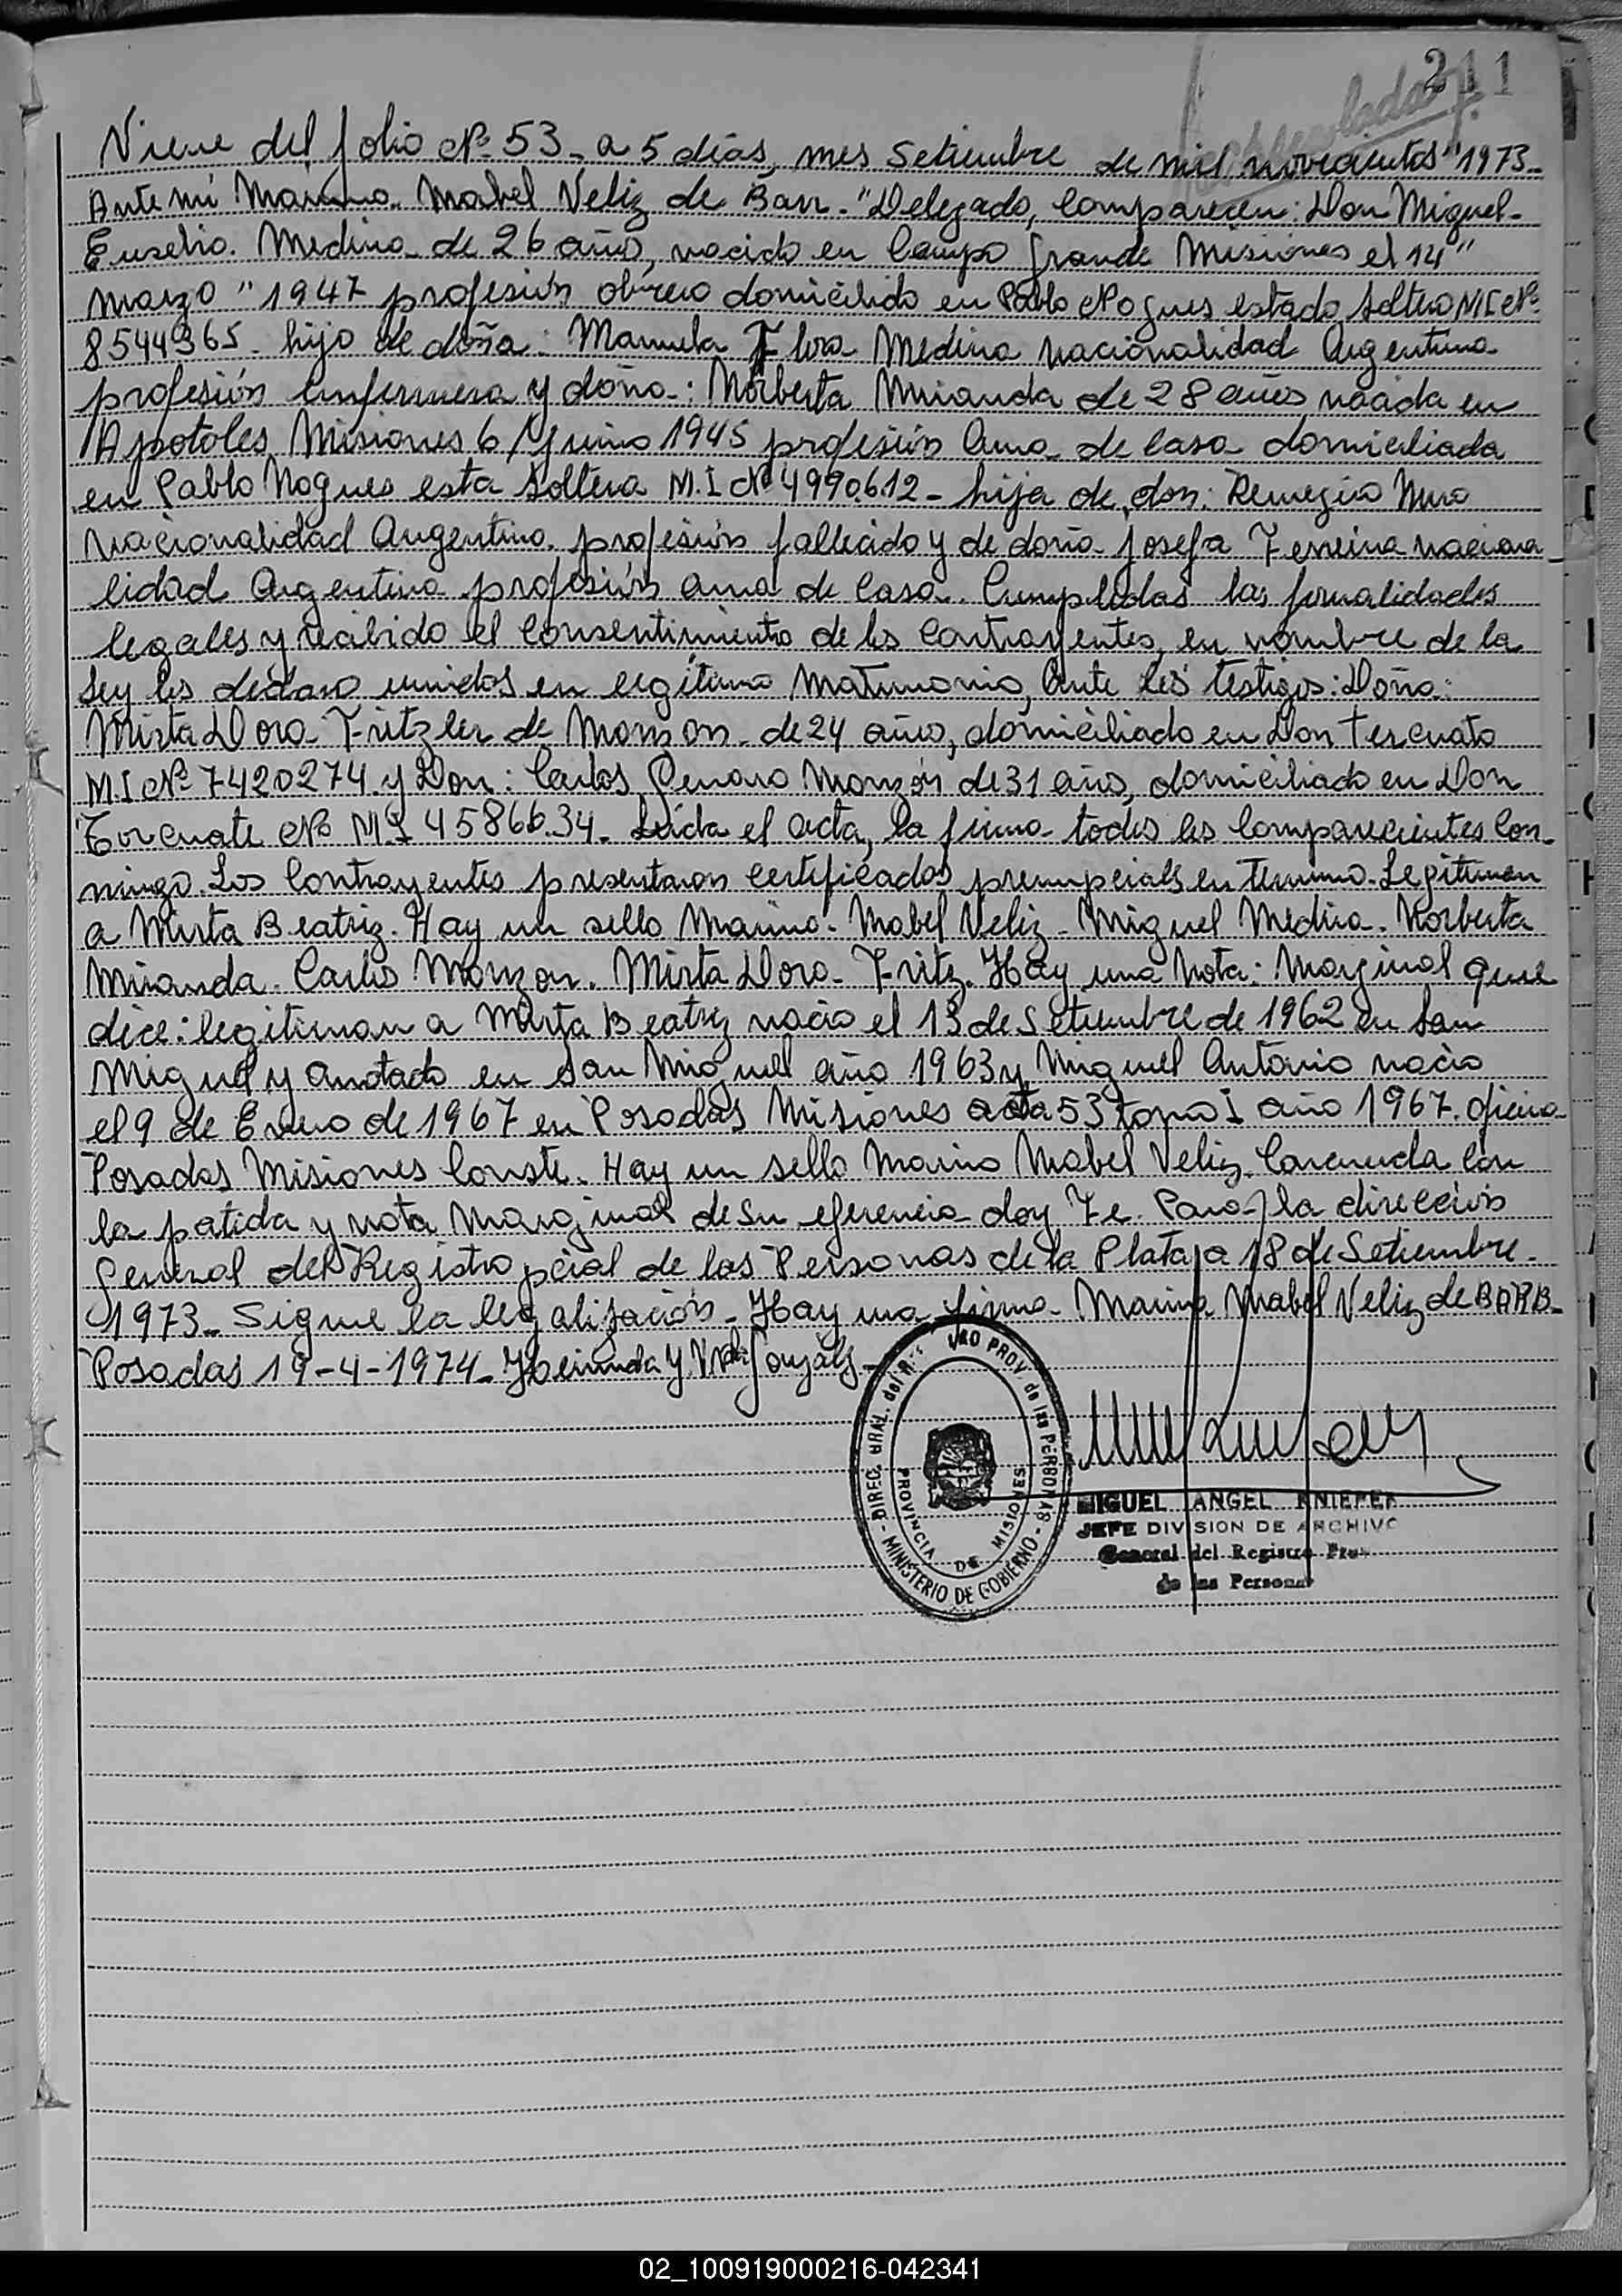 211
Viene del folio Nº 53 - a 5 días, mes Setiembre de mil novecientos "1973-
Ante mi Marina Mabel Veliz de Barr - "Delegado, Comparecen: Don Miguel-
Eusebio. Medina de 26 años, nacido en Campo Grande Misiones el 14"
Marzo "1947 profesión obrero domiciliado en Pablo Nogues estado Soltero MI Nº
8544365 - hijo de doña: Manuela Flora Medina Nacionalidad Argentina
profesión Enfermera y doña: Norberta Miranda de 28 años nacida en
Apotoles Misiones 6 Junio 1945 profesión Ama de Casa domiciliada
en Pablo Nogues esta Soltera M.I Nº 4990612 - hija de don: Remegio
Nacionalidad Argentino. profesión fallecido y de doña Josefa Ferreira naciona
lidad Argentina profesión ama de Casa. Cumplidas las formalidades
legales y recibido el Consentimiento de los Contrayentes, en nombre de la
Ley los declaro unidos en legítimo Matrimonio, Ante los testigos: Doña:
Mirta Dora Fritzler de Monzon de 24 años, domiciliado en Don Tercuato
M.I Nº 7420274 y Don: Carlos Genaro Monzón de 31 año, domiciliado en Don
Torcuate Nº M.I 4586634 - Leida el acta, la firma todos los Comparecientes Con-
migo. Los Contrayentes presentaron Certificados prenupcials en Termino. Legitiman
a Mirta Beatriz. Hay un sello Marina. Mabel Veliz - Miguel Medina. Norberta
Miranda. Carlos Monzon. Mirta Dora Fritz. Hay una Nota: Marginal que
dice: legitiman a Mirta Beatriz nacio el 13 de Setiembre de 1962 en San
Miguel y Anotado en San Miguel año 1963 y Miguel Antonio nació
el 9 de Enero de 1967 en Posadas Misiones acta 53 tomo I año 1967. oficina
Posadas Misiones Conste. Hay un sello Marina Mabel Veliz. Con
la patida y nota Marginal de Su eferencia doy Fe. Para la dirección
General del Registro pcial de las Personas de la Plata a 18 de Setiembre-
1973 - Sigue la legalización - Hay una firma - Marina Mabel Veliz de BARB-
Posadas 19-4-1974
DIREC. GRAL. del REGISTRO PROV. de las PERSONAS - MINISTERIO DE GOBIERNO -
PROVINCIA DE MISIONES
MIGUEL ANGEL KNIEPER
JEFE DIVISION DE ARCHIVO
General del Registro Prov
de las Personas
02_100919000216-042341